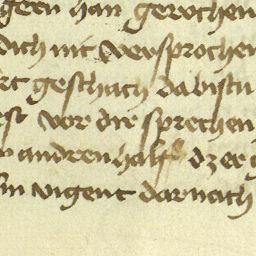 gern han gerochen
dich nit versprochen
geschach da bistu
vor dir sprechen
andren half dz er
vigent darnach